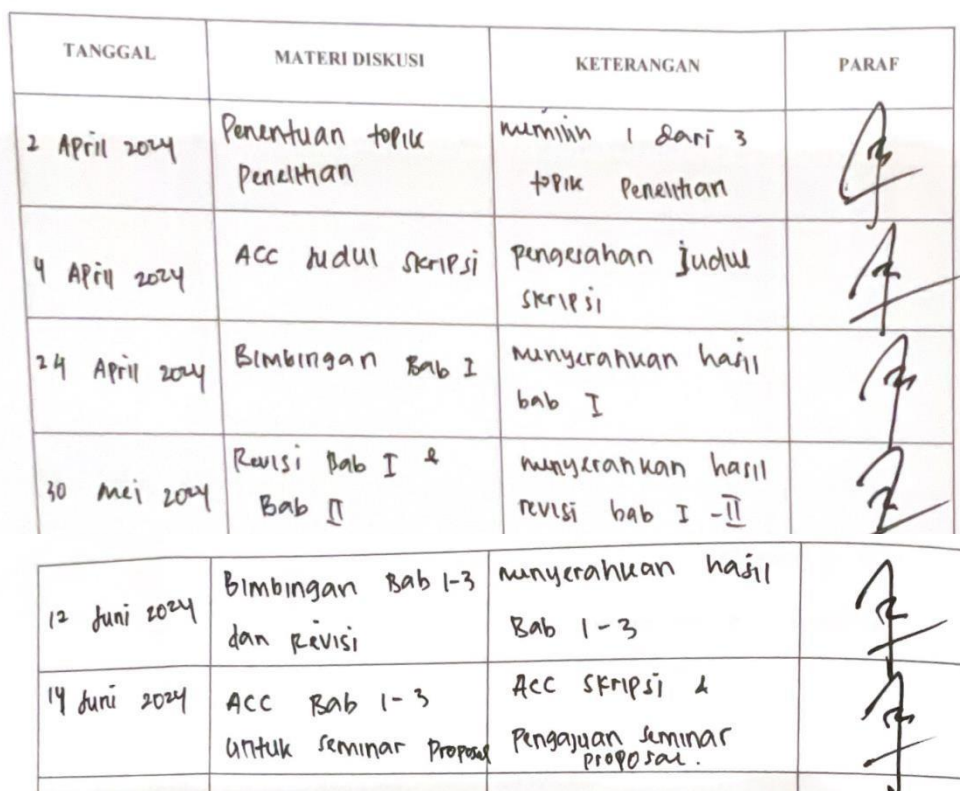 TANGGAL MATERI DISKUSI KETERANGAN PARAF
2 April 2024
Penentuan topik
Penelitian
memilih 1 dari 3
topik Penelitian
4 April 2024
ACC Judul Skripsi
pengerahan judul
skripsi
24 April 2024
Bimbingan Bab I
menyerahkan hasil
bab I
30 Mei 2024
Revisi Bab I &
Bab II
menyerahkan hasil
revisi bab I - II
12 Juni 2024
Bimbingan Bab 1-3
dan Revisi
menyerahkan hasil
Bab 1-3
14 Juni 2024
ACC Bab 1-3
untuk seminar Proposal
ACC Skripsi &
Pengajuan seminar
proposal.